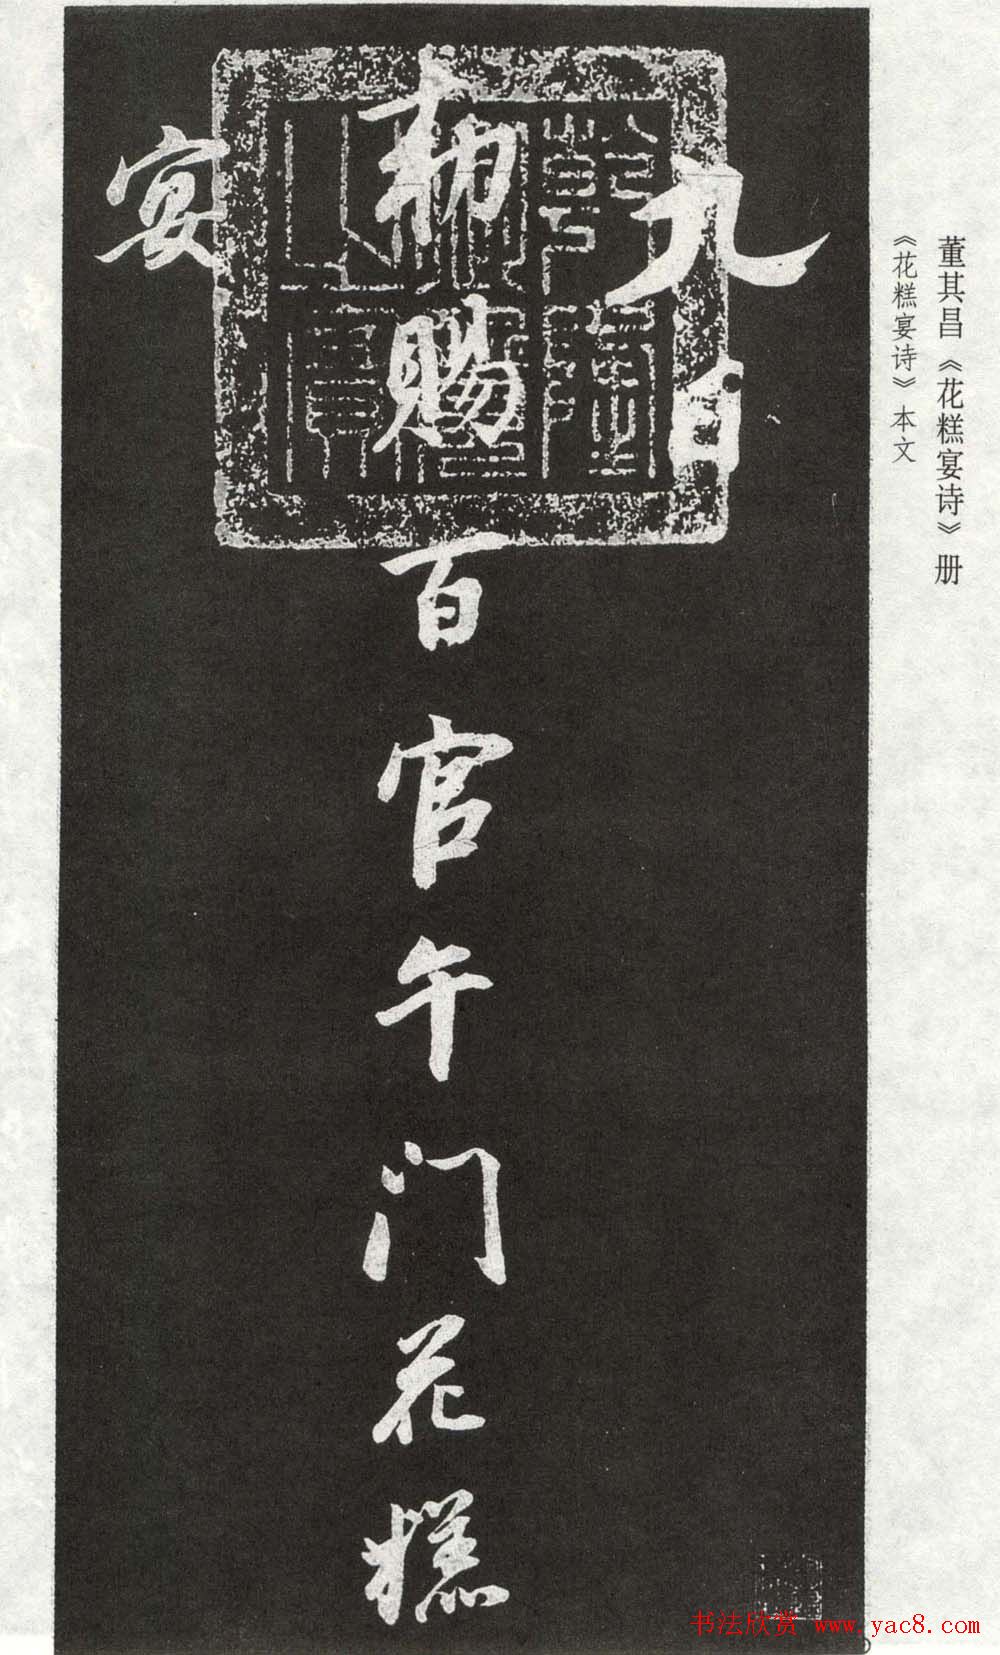 董其昌《花糕宴诗》册
《花糕宴诗》本文
九日
勅賜百官午门花糕
宴
书法欣赏 www.yac8.com